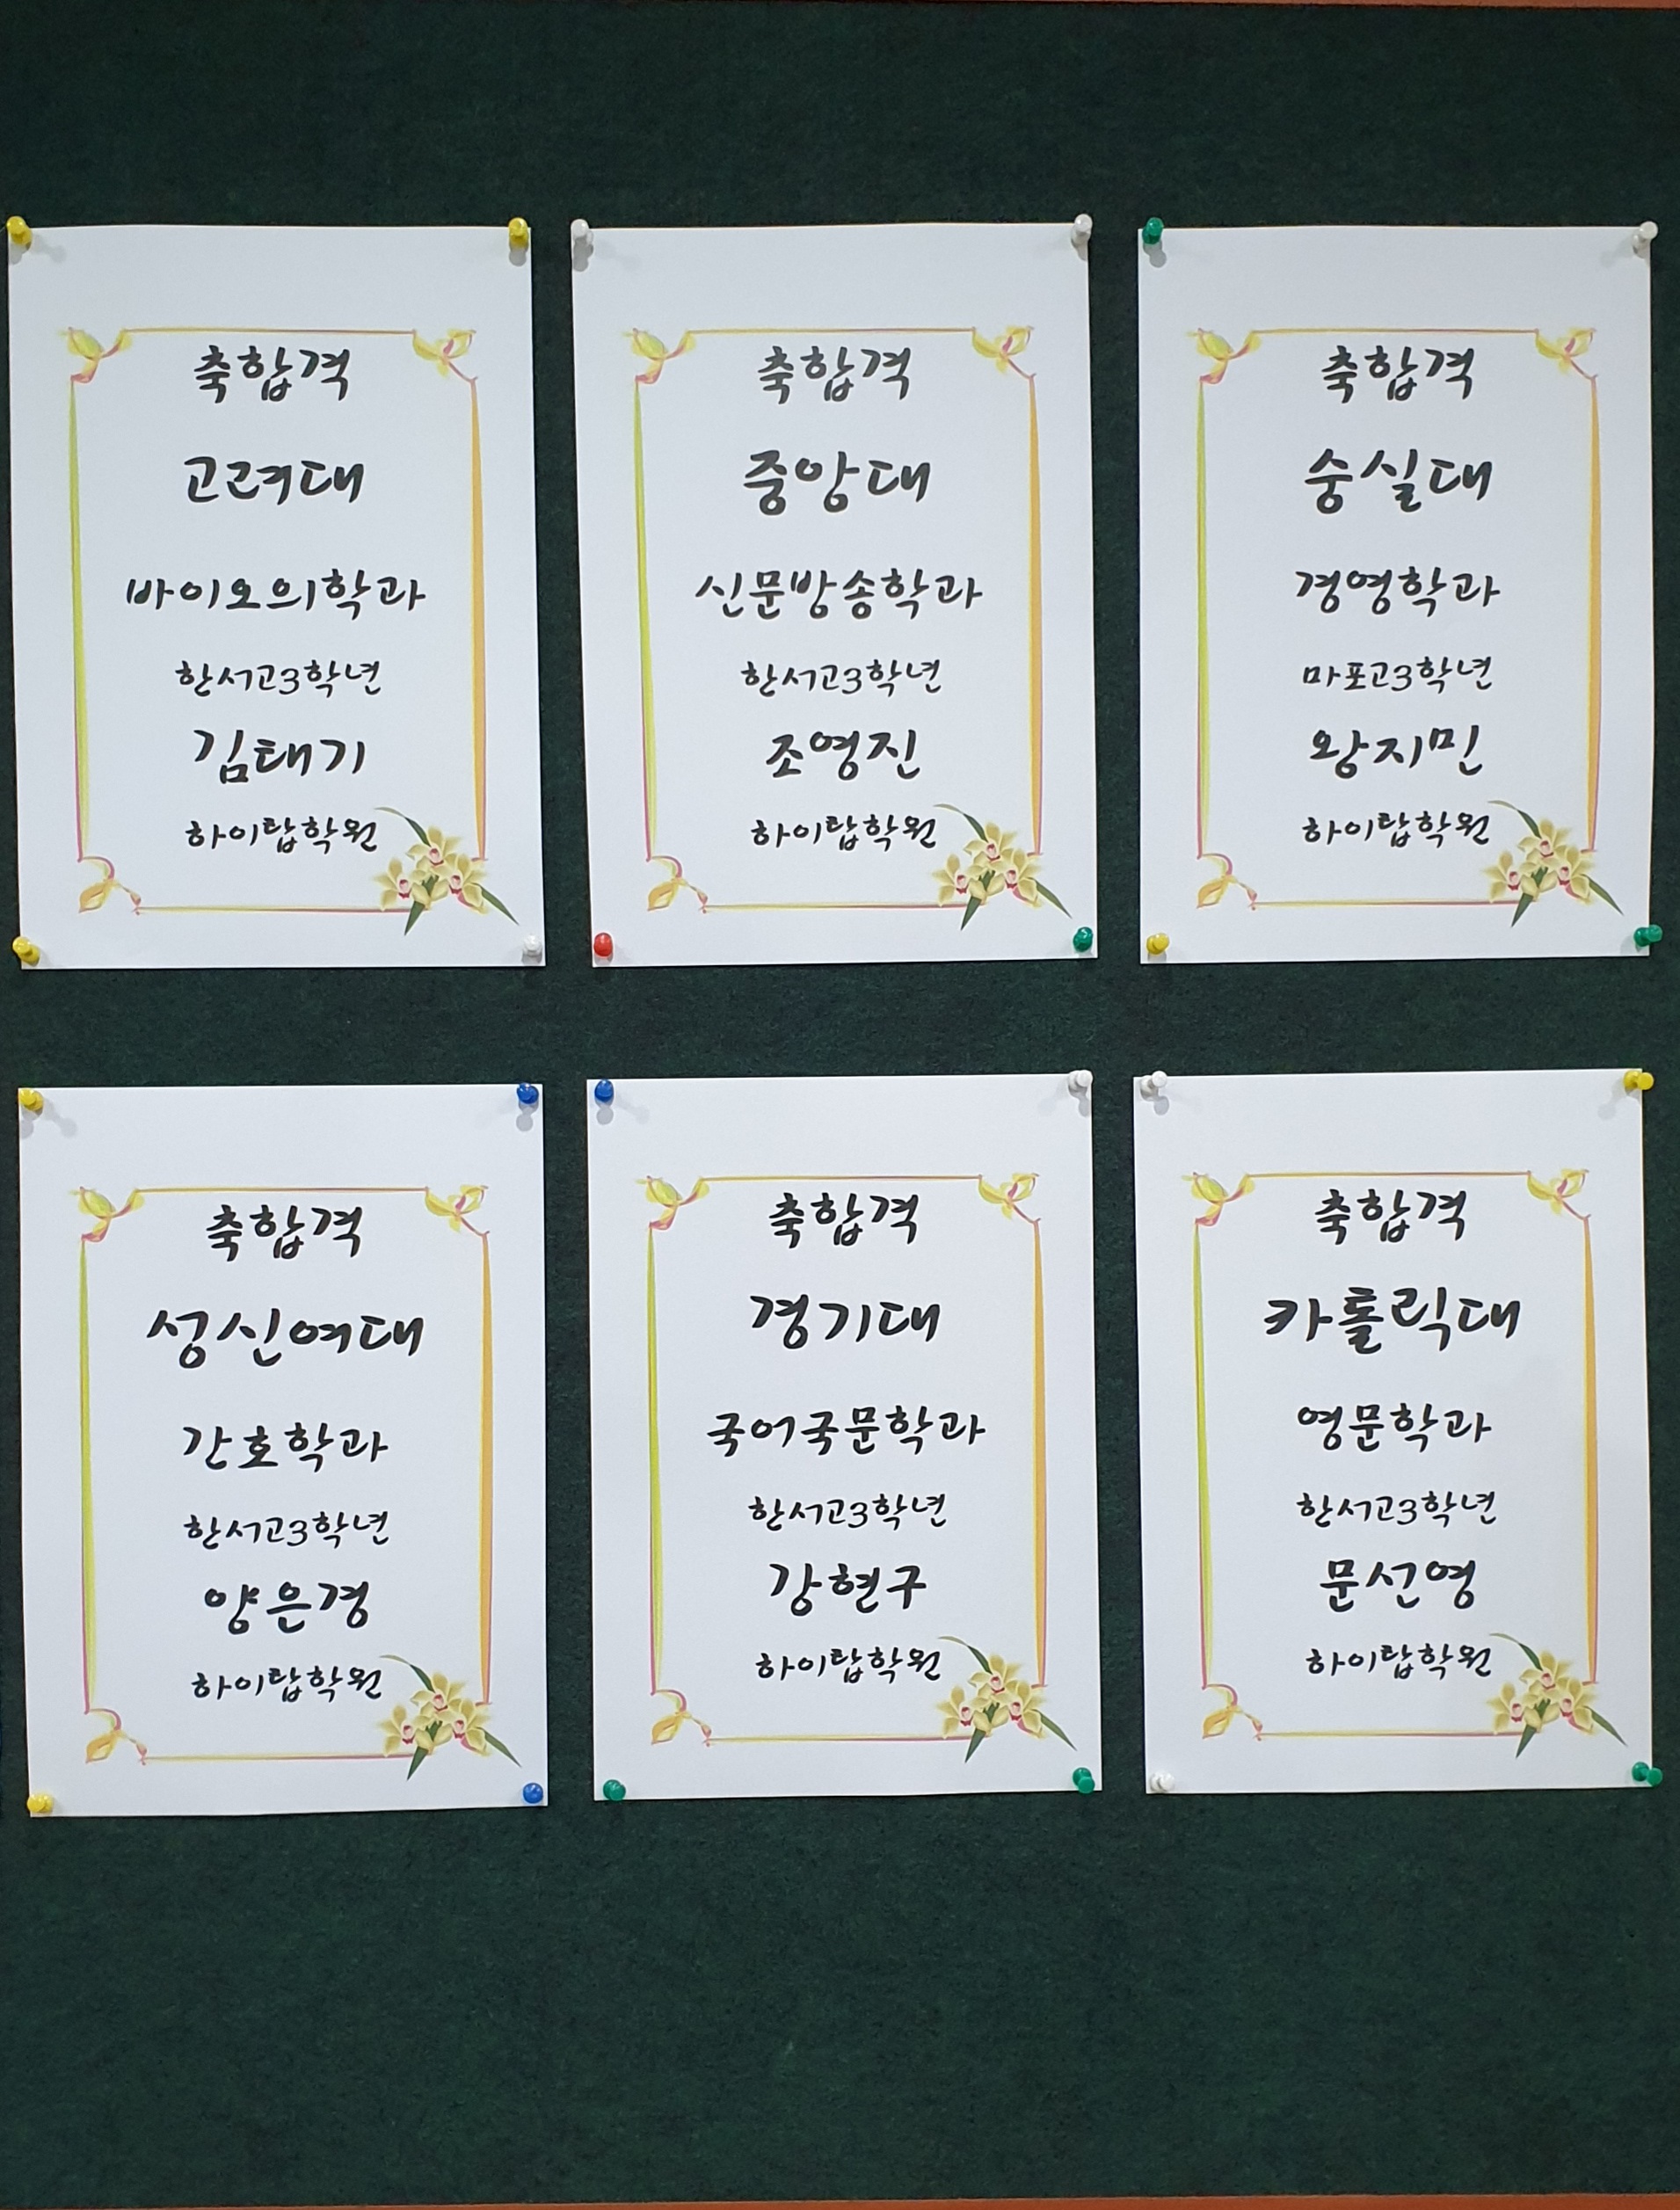 축합격
고려대
바이오의학과
한서고3학년
김태기
하이탑학원
축합격
중앙대
신문방송학과
한서고3학년
조영진
하이탑학원
축합격
숭실대
경영학과
마포고3학년
왕지민
하이탑학원
축합격
성신여대
간호학과
한서고3학년
양은경
하이탑학원
축합격
경기대
국어국문학과
한서고3학년
강현구
하이탑학원
축합격
카톨릭대
영문학과
한서고3학년
문선영
하이탑학원